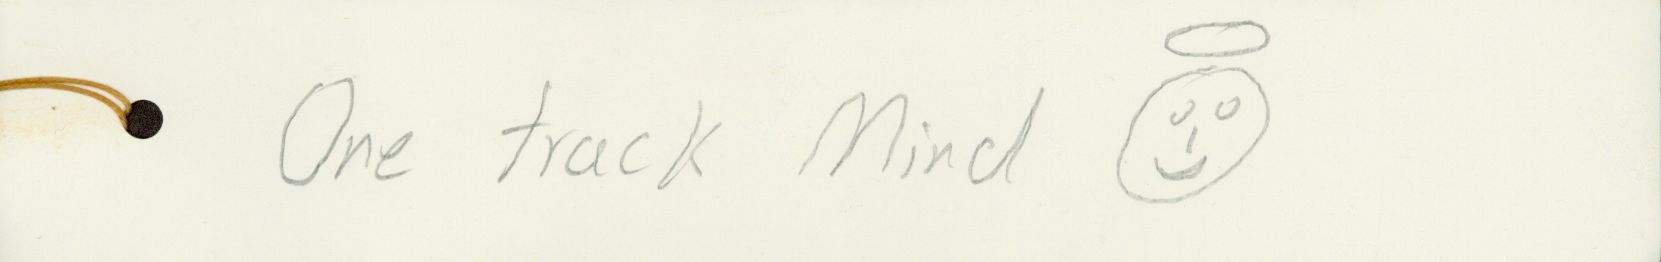 One track Mind